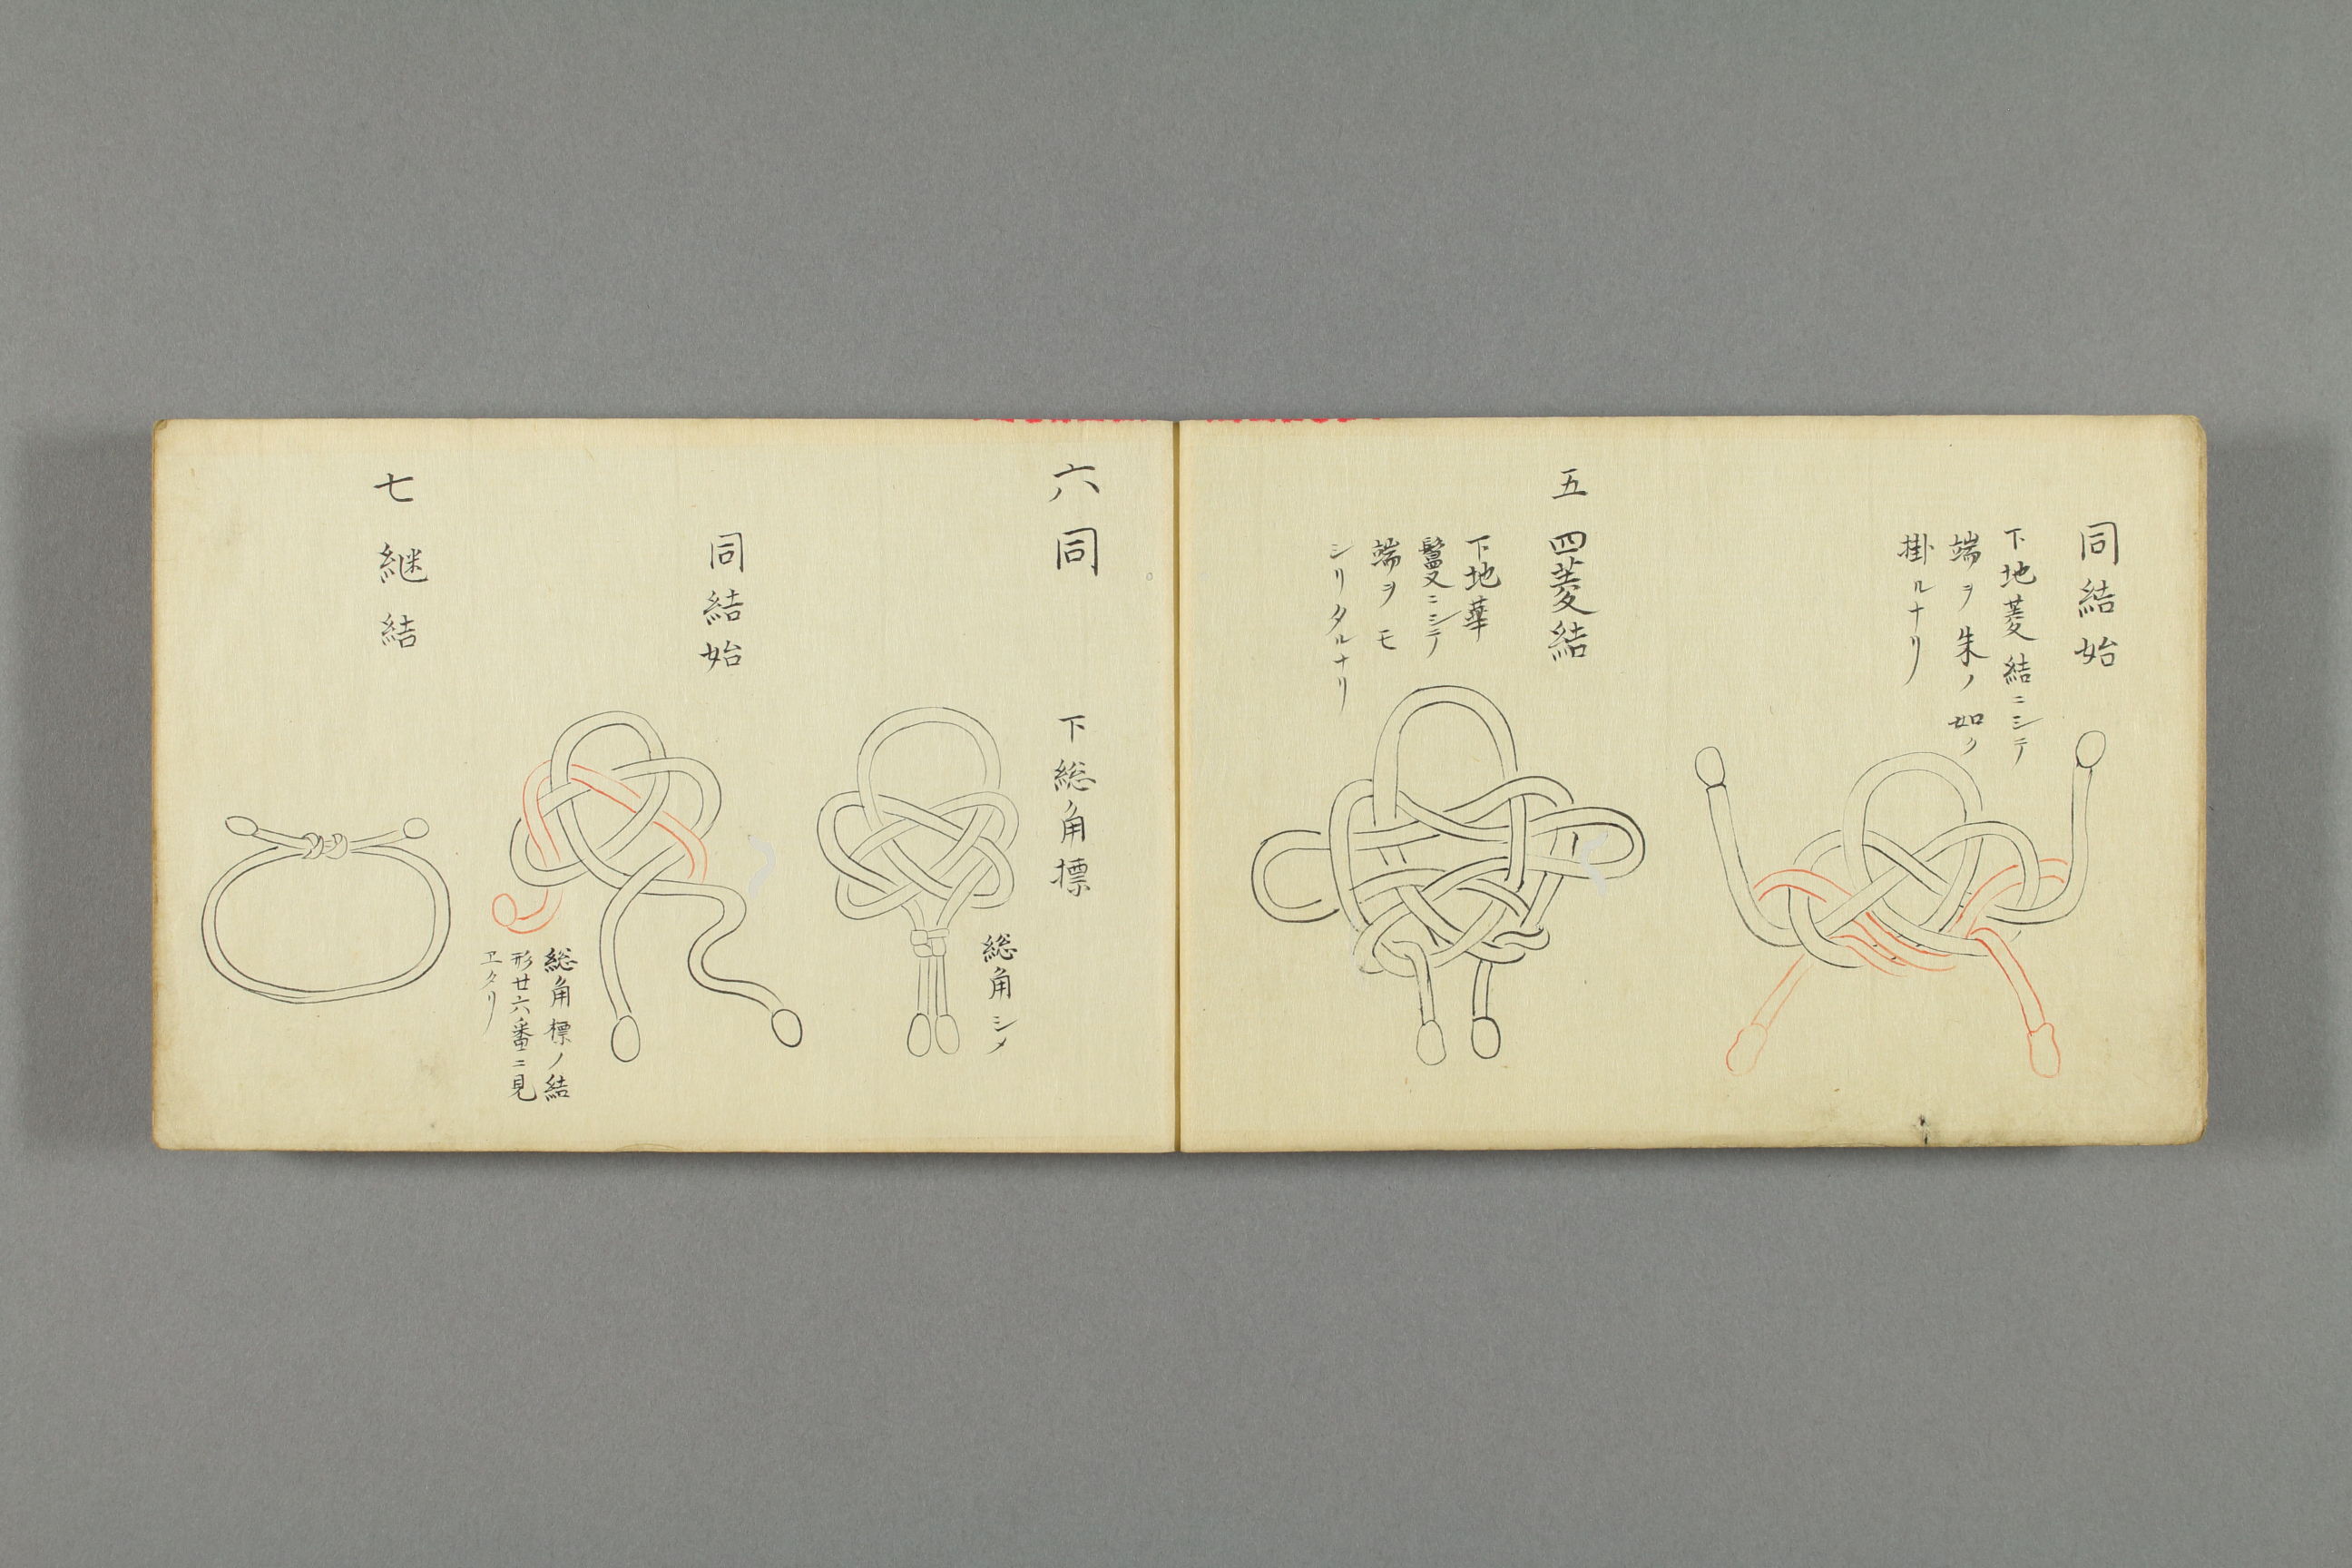 同結始
下地菱結ニシテ
端ヲ朱ノ如ク
掛ルナリ
五 四菱結
下地華
鬘ニシテ
端ヲモ
シリタルナリ
六 同
下総角標
総角シメ
同結始
総角標ノ結
形廿六番ニ見
ヱタリ
七 継結